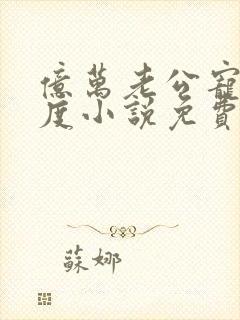 億萬老公寵
度小說免費
蘇娜